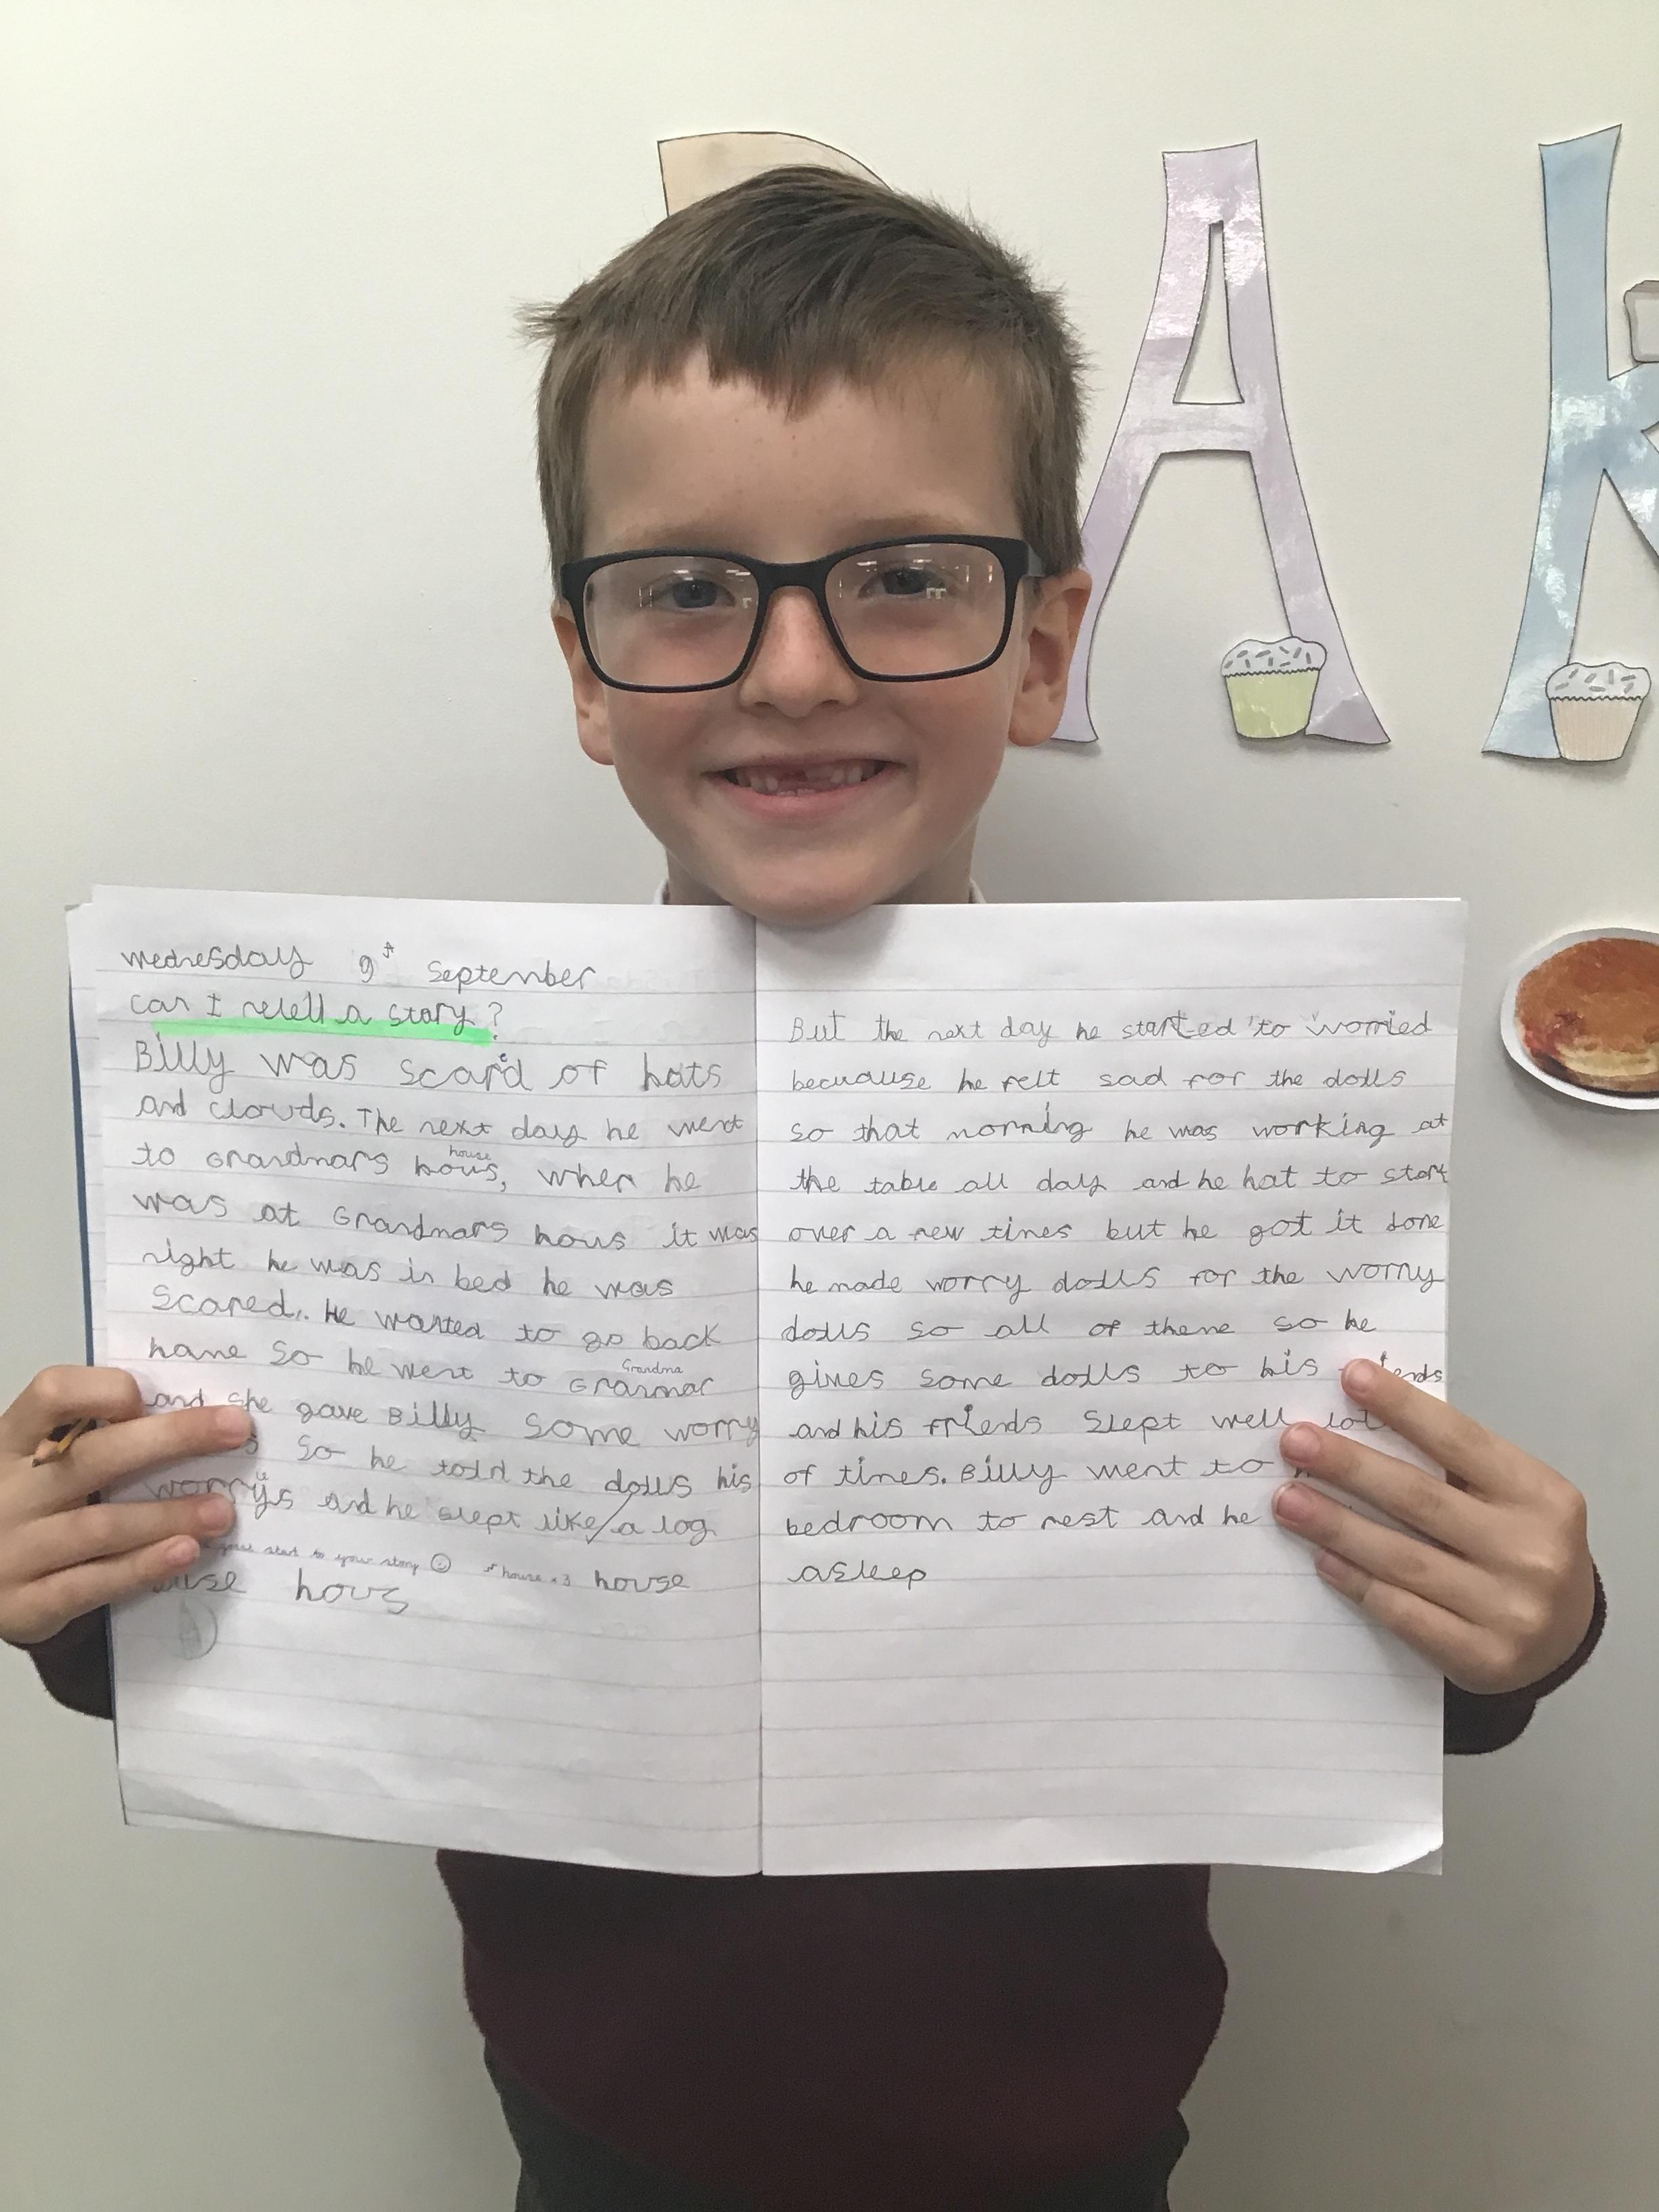 A K
Wednesday 9th September
can I retell a story?
Billy was scared of hats
and clouds. The next day he went
to Grandmars hous, when he
house
was at Grandmars hous it was
night he was in bed he was
Scared. He wanted to go back
home so he went to Granmar
Grandma
and she gave Billy some worry
so he told the dolls his
worrys and he slept like/a log
start to your story house x3 house
hous
But the next day he started to worried
becuause he felt sad for the dolls
so that morning he was working at
the table all day and he hat to start
over a few times but he got it done
he made worry dolls for the worry
dolls so all of theme so he
gives some dolls to his
and his friends Slept well
of times. Billy went to
bedroom to rest and he
asleep